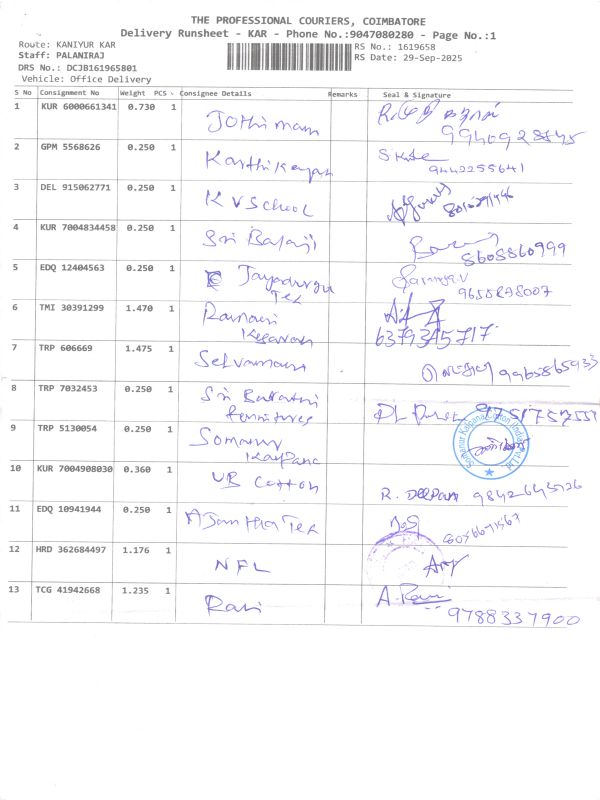 THE PROFESSIONAL COURIERS, COIMBATORE
Delivery Runsheet - KAR - Phone No.:9047080280 - Page No.:1
Route: KANIYUR KAR
RS No.: 1619658
Staff: PALANIRAJ
RS Date: 29-Sep-2025
DRS No.: DCJB161965801
Vehicle: Office Delivery
S No Consignment No Weight PCS Consignee Details Remarks Seal & Signature
1 KUR 6000661341 0.730 1 Jothimani
2 GPM 5568626 0.250 1 Karthikeyan
9442255641
3 DEL 915062771 0.250 1 KV School
4 KUR 7004834458 0.250 1 Sri Balaji
8608860999
5 EDQ 12404563 0.250 1 Jayadurga
Tex
6 TMI 30391299 1.470 1
6379345717
7 TRP 606669 1.475 1 Selvamani
9965865933
8 TRP 7032453 0.250 1 Sri
furnitures
9751757551
9 TRP 5130054 0.250 1 Somanur
Kalpana
10 KUR 7004908030 0.360 1 UB Cotton
R. DEEPAM
11 EDQ 10941944 0.250 1 Ajantha Tex
8056671567
12 HRD 362684497 1.176 1 NFL
13 TCG 41942668 1.235 1 Ravi
A. Ravi
9788337900